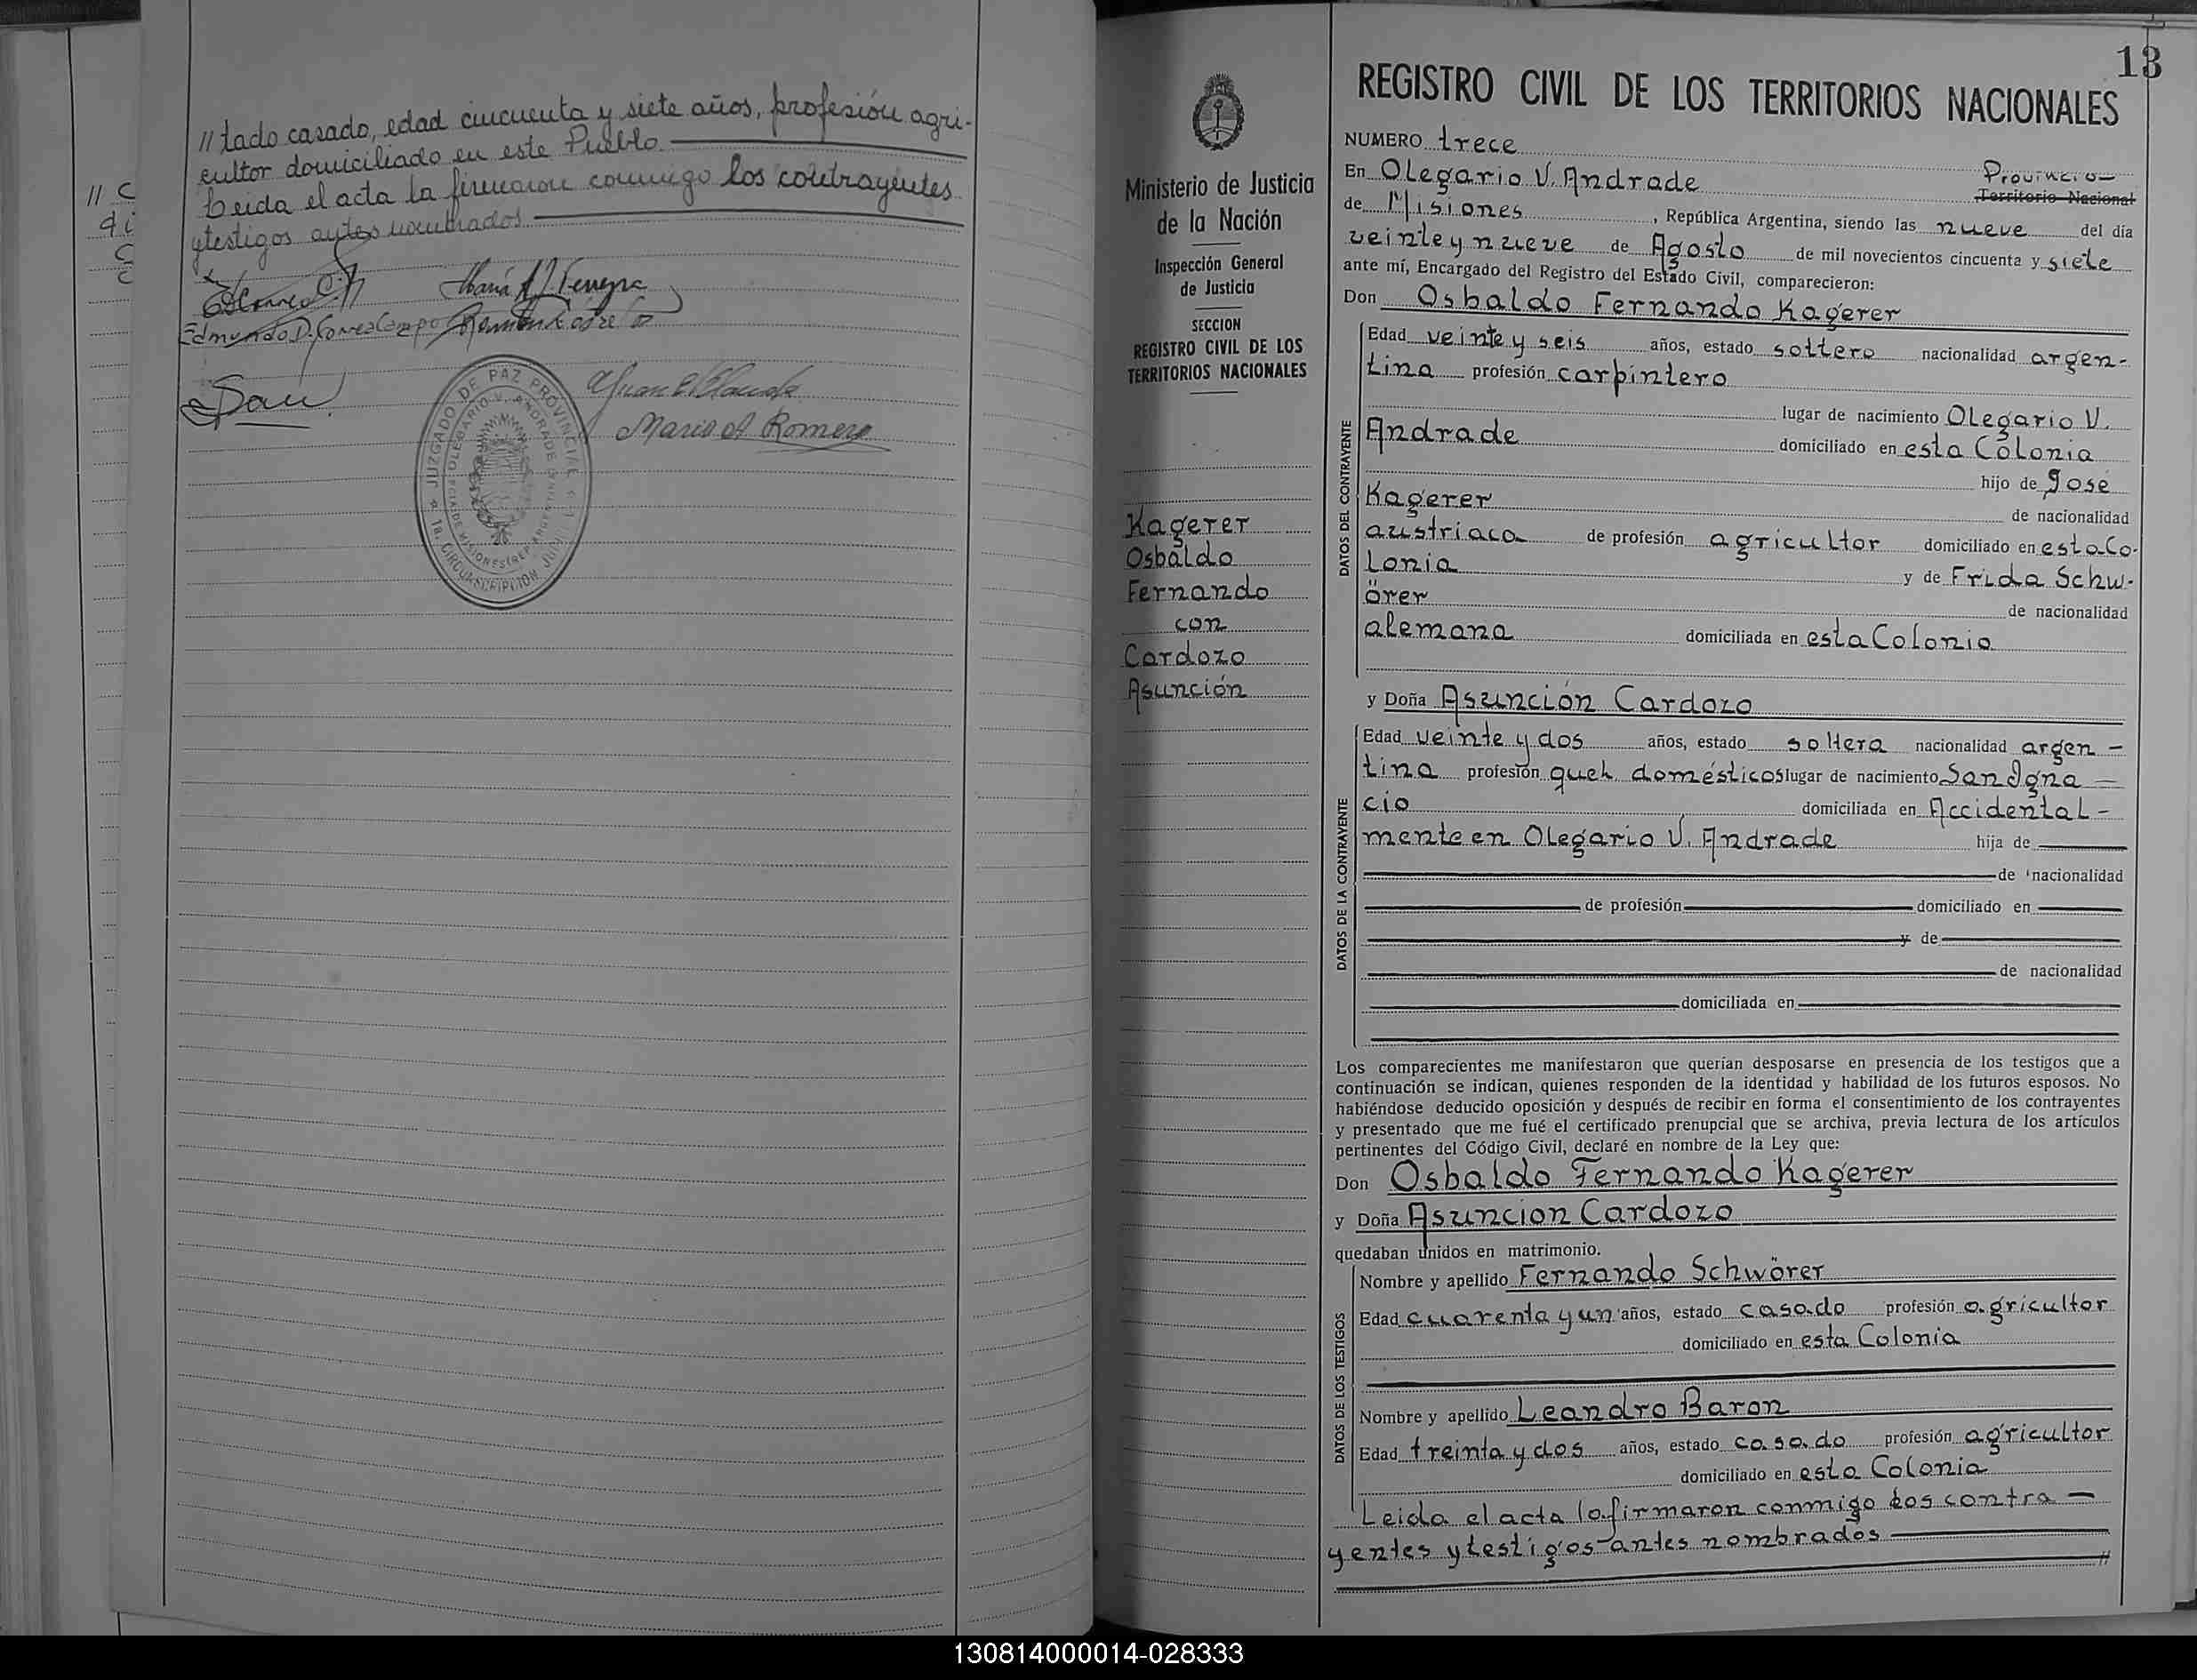 // tado casado, edad cincuenta y siete años, profesión agri-
cultor domiciliado en este Pueblo
Leida el acta la firmaron conmigo los contrayentes
y testigos antes nombrados
Mario A Romero
JUZGADO DE PAZ PROVINCIAL
OLEGARIO V. ANDRADE
1a. CIRCUNSCRIPCION
13
REGISTRO CIVIL DE LOS TERRITORIOS NACIONALES
Ministerio de Justicia
de la Nación
Inspección General
de Justicia
SECCION
REGISTRO CIVIL DE LOS
TERRITORIOS NACIONALES
Kagerer
Osbaldo
Fernando
con
Cardozo
Asunción
NUMERO trece
En Olegario V. Andrade Provincia Territorio Nacional
de Misiones, República Argentina, siendo las nueve del día
veinte y nueve de Agosto de mil novecientos cincuenta y siete
ante mí, Encargado del Registro del Estado Civil, comparecieron:
Don Osbaldo Fernando Kagerer
DATOS DEL CONTRAYENTE
Edad veinte y seis años, estado soltero nacionalidad argen-
tina profesión carpintero
lugar de nacimiento Olegario V.
Andrade domiciliado en esta Colonia
hijo de José
Kagerer de nacionalidad
austriaca de profesión agricultor domiciliado en esta Co-
lonia y de Frida Schw-
örer de nacionalidad
alemana domiciliada en esta Colonia
y Doña Asunción Cardozo
DATOS DE LA CONTRAYENTE
Edad veinte y dos años, estado soltera nacionalidad argen-
tina profesión queh. domésticos lugar de nacimiento San Igna-
cio domiciliada en Accidental-
mente en Olegario V. Andrade hija de
de nacionalidad
de profesión domiciliado en
y de
de nacionalidad
domiciliada en
Los comparecientes me manifestaron que querían desposarse en presencia de los testigos que a
continuación se indican, quienes responden de la identidad y habilidad de los futuros esposos. No
habiéndose deducido oposición y después de recibir en forma el consentimiento de los contrayentes
y presentado que me fué el certificado prenupcial que se archiva, previa lectura de los artículos
pertinentes del Código Civil, declaré en nombre de la Ley que:
Don Osbaldo Fernando Kagerer
y Doña Asuncion Cardozo
quedaban unidos en matrimonio.
DATOS DE LOS TESTIGOS
Nombre y apellido Fernando Schwörer
Edad cuarenta y un años, estado casado profesión agricultor
domiciliado en esta Colonia
Nombre y apellido Leandro Baron
Edad treinta y dos años, estado casado profesión agricultor
domiciliado en esta Colonia
Leida el acta la firmaron conmigo los contra-
yentes y testigos antes nombrados
//
130814000014-028333